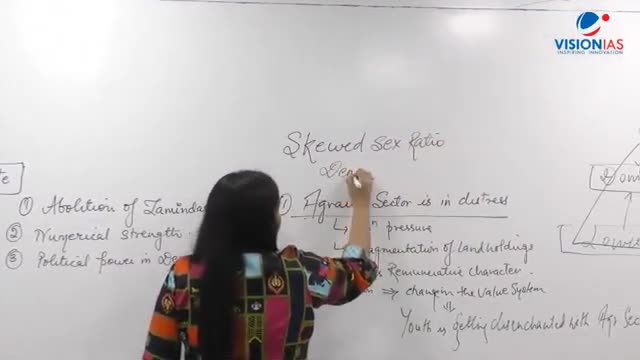 VISIONIAS
INSPIRING INNOVATION
Skewed Sex Ratio
① Abolition of Zamindar
② Numerical Strength
③ Political power in De
Agra Sector is in distress
↳ pressure
↳ agmentation of Landholdings
Remunerative Character
⇒ change in the Value System
⇓
Youth is getting disenchanted with Agr Sec